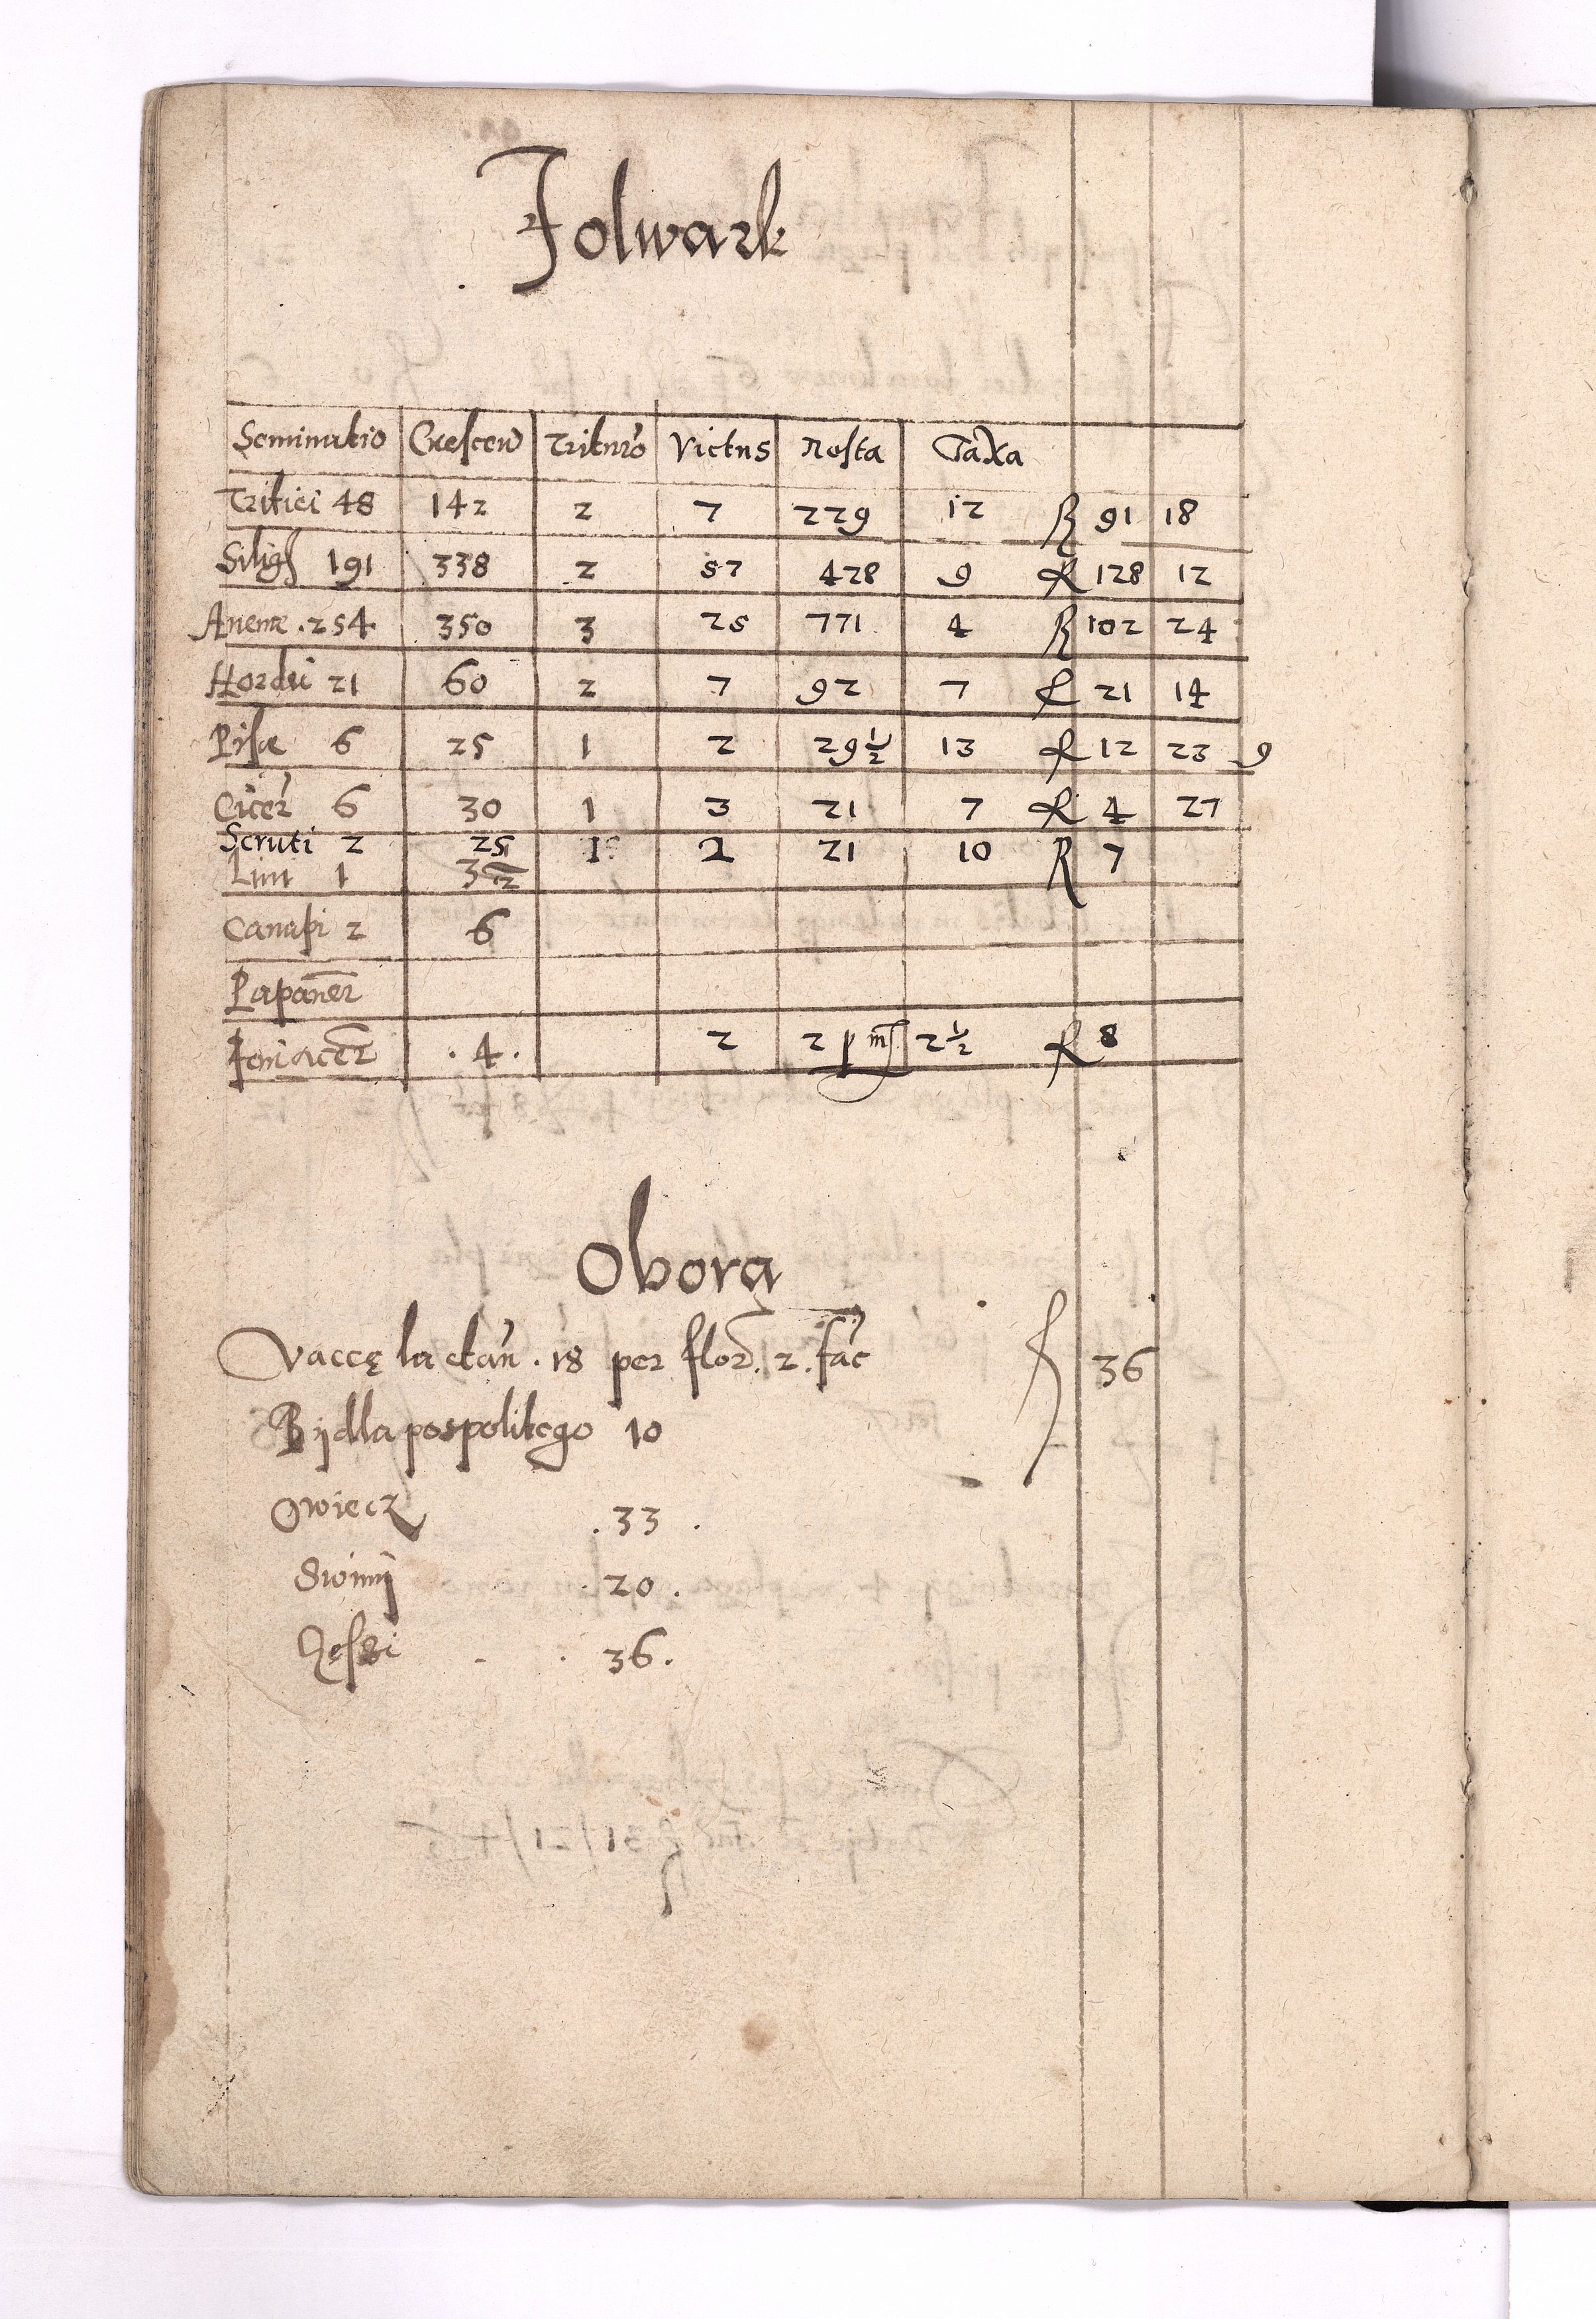 Folwark
Seminatio Crescen Trituro Victus Resta Taxa
Tritici 48 142 2 7 229 12 R 91 18
Silig 191 338 2 57 428 9 R 128 12
Avenæ 254 350 3 25 771 4 R 102 24
Hordei 21 60 2 7 92 7 R 21 14
Pisæ 6 25 1 2 29½ 13 R 12 23 9
Cicer 6 30 1 3 21 7 R 4 27
Scruti 2 25 1 2 21 10 R 7
Lini 1 3½
Canapi 2 6
Papaver
4 2 2 2½ R 8
Obora
Vaccę lactan. 18 per flor. 2. fac R 36
Bydla pospolitego 10
Owiecz . 33 .
Swinij . 20 .
Gęssi . 36.